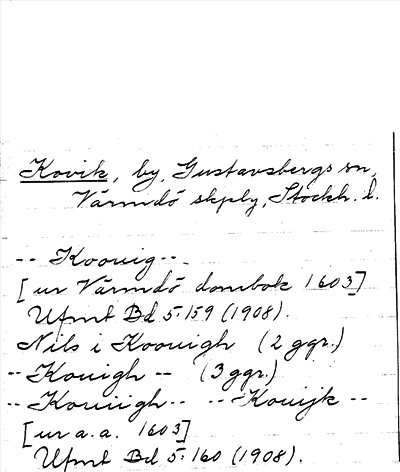 Kovik, by, Gustavsbergs sn,
Värmdö skply, Stockh. l.
-- Koouig --
[ur Värmdö dombok 1603]
Ufmt Bd 5.159 (1908).
Nils i Koouigh (2 ggr.)
-- Kouigh -- (3 ggr.)
-- Kouiigh -- -- Kouijk --
[ur a.a. 1603]
Ufmt Bd 5.160 (1908).